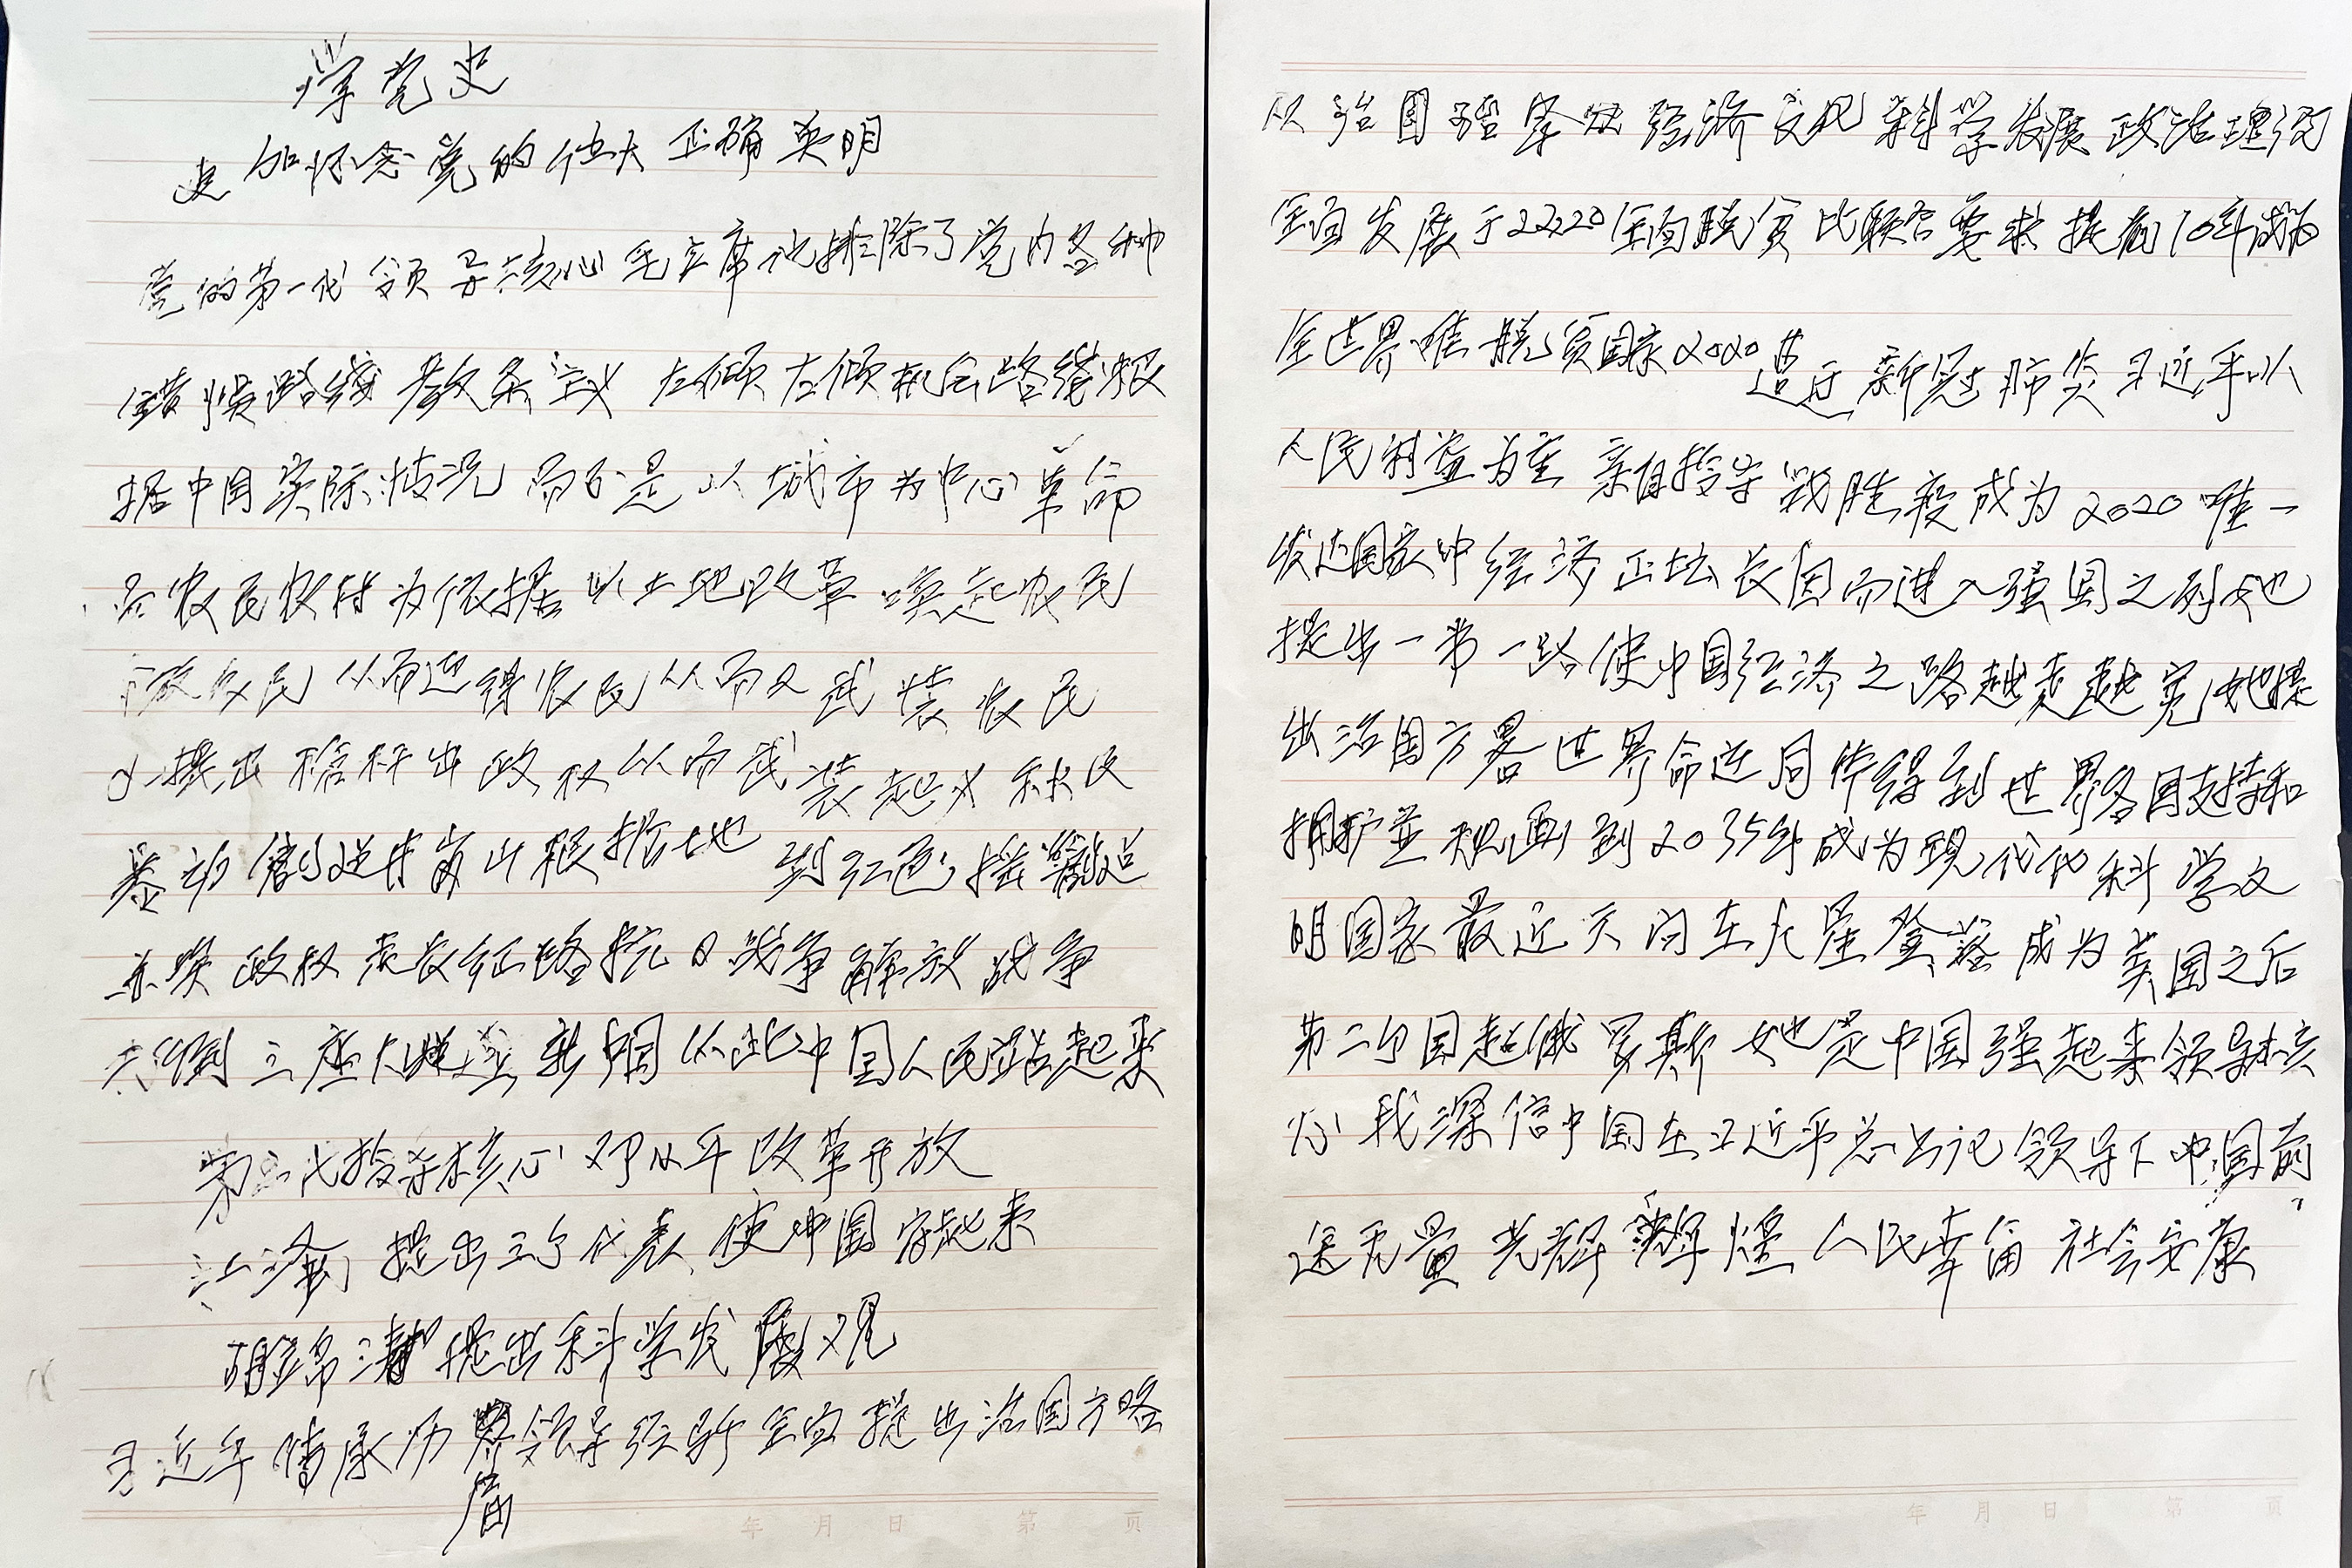 学党史
更加怀念党的伟大正确英明
党的第一代领导核心毛主席他排除了党内各种
错误路线 教条主义 左倾右倾机会路线根
据中国实际情况 而不是以城市为中心革命
农民农村为根据 以土地改革 唤起农民
农民 从而 得农民从而又武装农民
又提出枪杆出政权从而武装起义 秋收
暴动 创造井岗山根据地 到红色摇篮
苏埃政权 走长征路抗日战争解放战争
倒三座大 新中国 从此中国人民站起来
第二代指导核心邓从平改革开放
江泽 提出三个代表 使中国富起来
胡锦涛提出科学发展观
习近平传承历界领导 全面提出治国方略
届
从治国 经济 科学发展 政治理论
全面发展于2220全面脱贫 比联合要求提前10年成为
全世界唯脱贫国家2020遭 新冠肺炎 习近平以
人民利益为重 亲自指导战胜疫成为2020唯一
发达国家中经济正 长因而进入强国之列 她
提出一带一路使中国经济之路越走越宽 她提
出治国方略 世界命运同体得到世界各国支持和
拥护并规画到2035年成为现代化科学文
明国家 最近天问在火星登 成为美国之后
第二个国超俄罗斯 她是中国强起来领导核
心 我深信中国在习近平总书记领导下中国前
途无量 光辉 辉煌 人民幸 社会安康
年 月 日 第 页
年 月 日 第 页